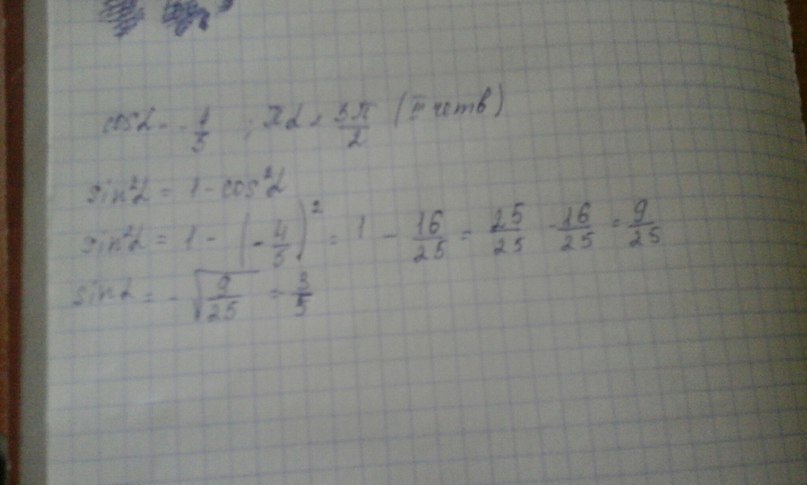 cosα = -4/5 ; π α < 3π/2 (III четв)
sin²α = 1 - cos²α
sin²α = 1 - (-4/5)² = 1 - 16/25 = 25/25 - 16/25 = 9/25
sinα = -√9/25 = 3/5